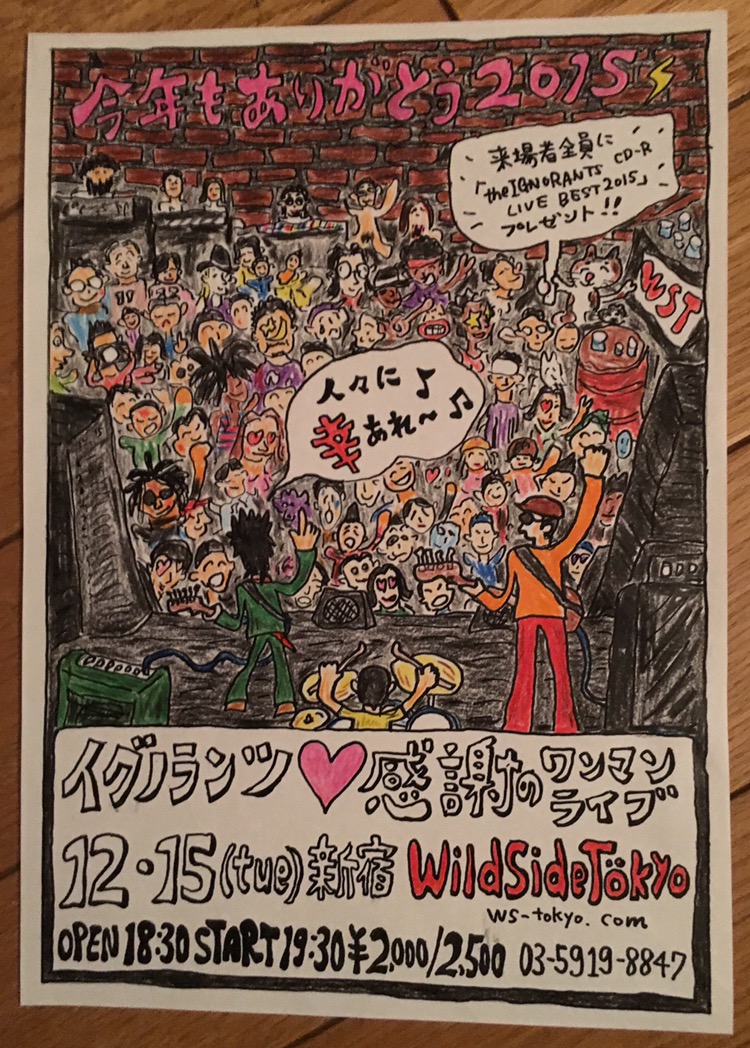 今年もありがとう2015
来場者全員に
「theIGNORANTS CD-R
LIVE BEST2015」
プレゼント!!
WST
人々に♪
幸あれ〜♫
イグノランツ♥感謝のワンマンライブ
12・15(tue)新宿 WildSideTökyo
ws-tokyo.com
OPEN 18:30 START 19:30 ¥2,000/2,500 03-5919-8847